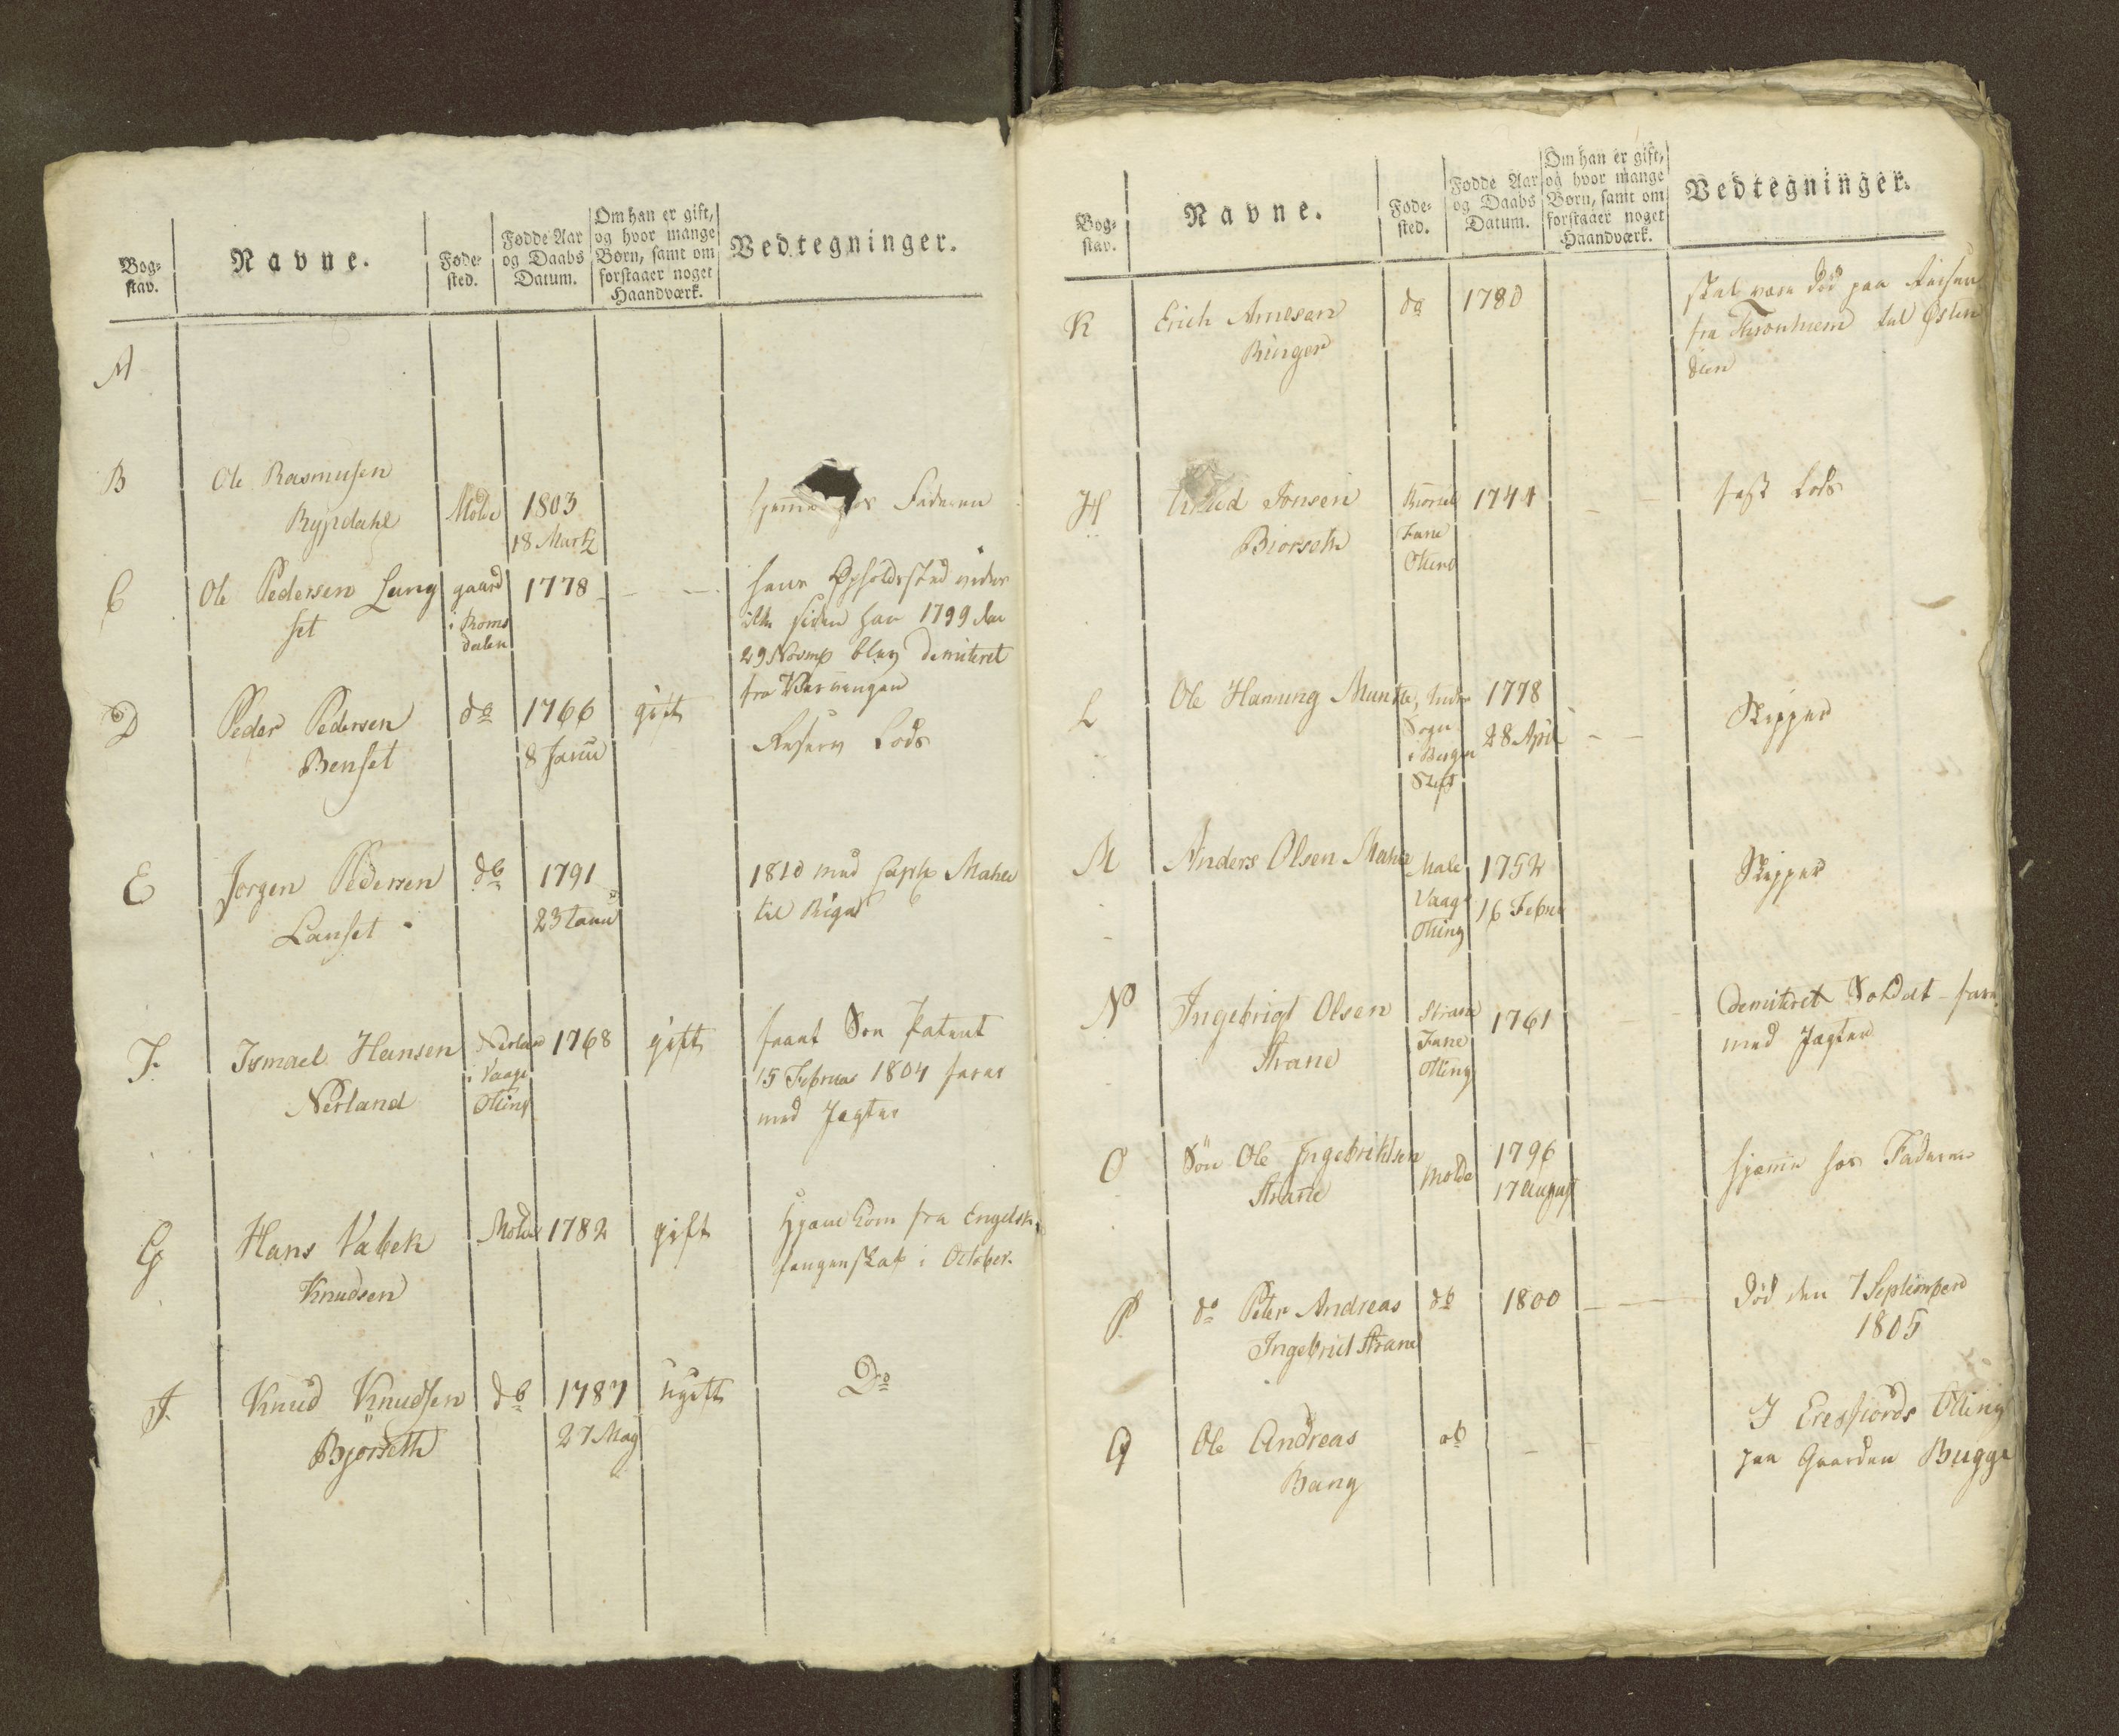 Bog-
stav.
Navne.
Føde-
sted.
Fødde Aar
og Daabs
Datum.
Om han er gift,
og hvor mange
Børn, samt om
forstaaer noget
Haandværk.
Vedtegninger.
A
B
Ole Rasmusen
Rypdahl
Molde
1803
18 Martz
hjemme hos Faderen
C
Ole Pedersen Lang
set
gaard
i Roms
dalen
1778
hans Opholdsstad vides
ikke siden han 1799 den
29 Novmb blev demiteret
fra
D
Peder Pedersen
Benset
do
1766
8 Janu
gift
Reserv Lods
E
Jørgen Pedersen
Lanset
do
1791
23 Janu
1810 med Capt Mahle
til Riga
F.
Ismael Hansen
Nerland
Nerland
i Vaage
Otting
1768
gift
faaet Søe Patent
15 Februar 1804 farer
med Jagter
G
Hans Vabek
Knudsen
Molde
1782
gift
Hjem kom fra Engelsk
fangenskab i October.
J.
Knud Knudsen
Bjørseth
do
1787
27 May
ugift
Do
Bog-
stav.
Navne.
Føde-
sted.
Fødde Aar
og Daabs
Datum.
Om han er gift,
og hvor mange
Børn, samt om
forstaaer noget
Haandværk.
Vedtegninger.
K
Erich Arnesen
Burger
do
1780
skal være død paa Reisen
fra Thronhiem til Østin
dien
H
Knud Jonsen
Biørseth
Biørset
Fane
Otting
1744
fast Lods
L
Ole Hanning Munthe,
Sogn
i Bergen
Stift
1778
28 April
Skipper
M
Anders Olsen Mahle
Male
Vaag
Otting
1752
16 Febru
Skipper
N
Ingebrigt Olsen
Strane
Strane
Fane
Otting
1761
demiteret Soldat - farer
med Jagter
O
Søn Ole Ingebriktsen
Strane
Molde
1796
17 August
hjemme hos Faderen
P.
do Peter Andreas
Ingebrict Strane
do
1800
død den 7 September
1805
Q
Ole Andreas
Bang
do
I Eresfiords Otting
paa Gaarden Bugge